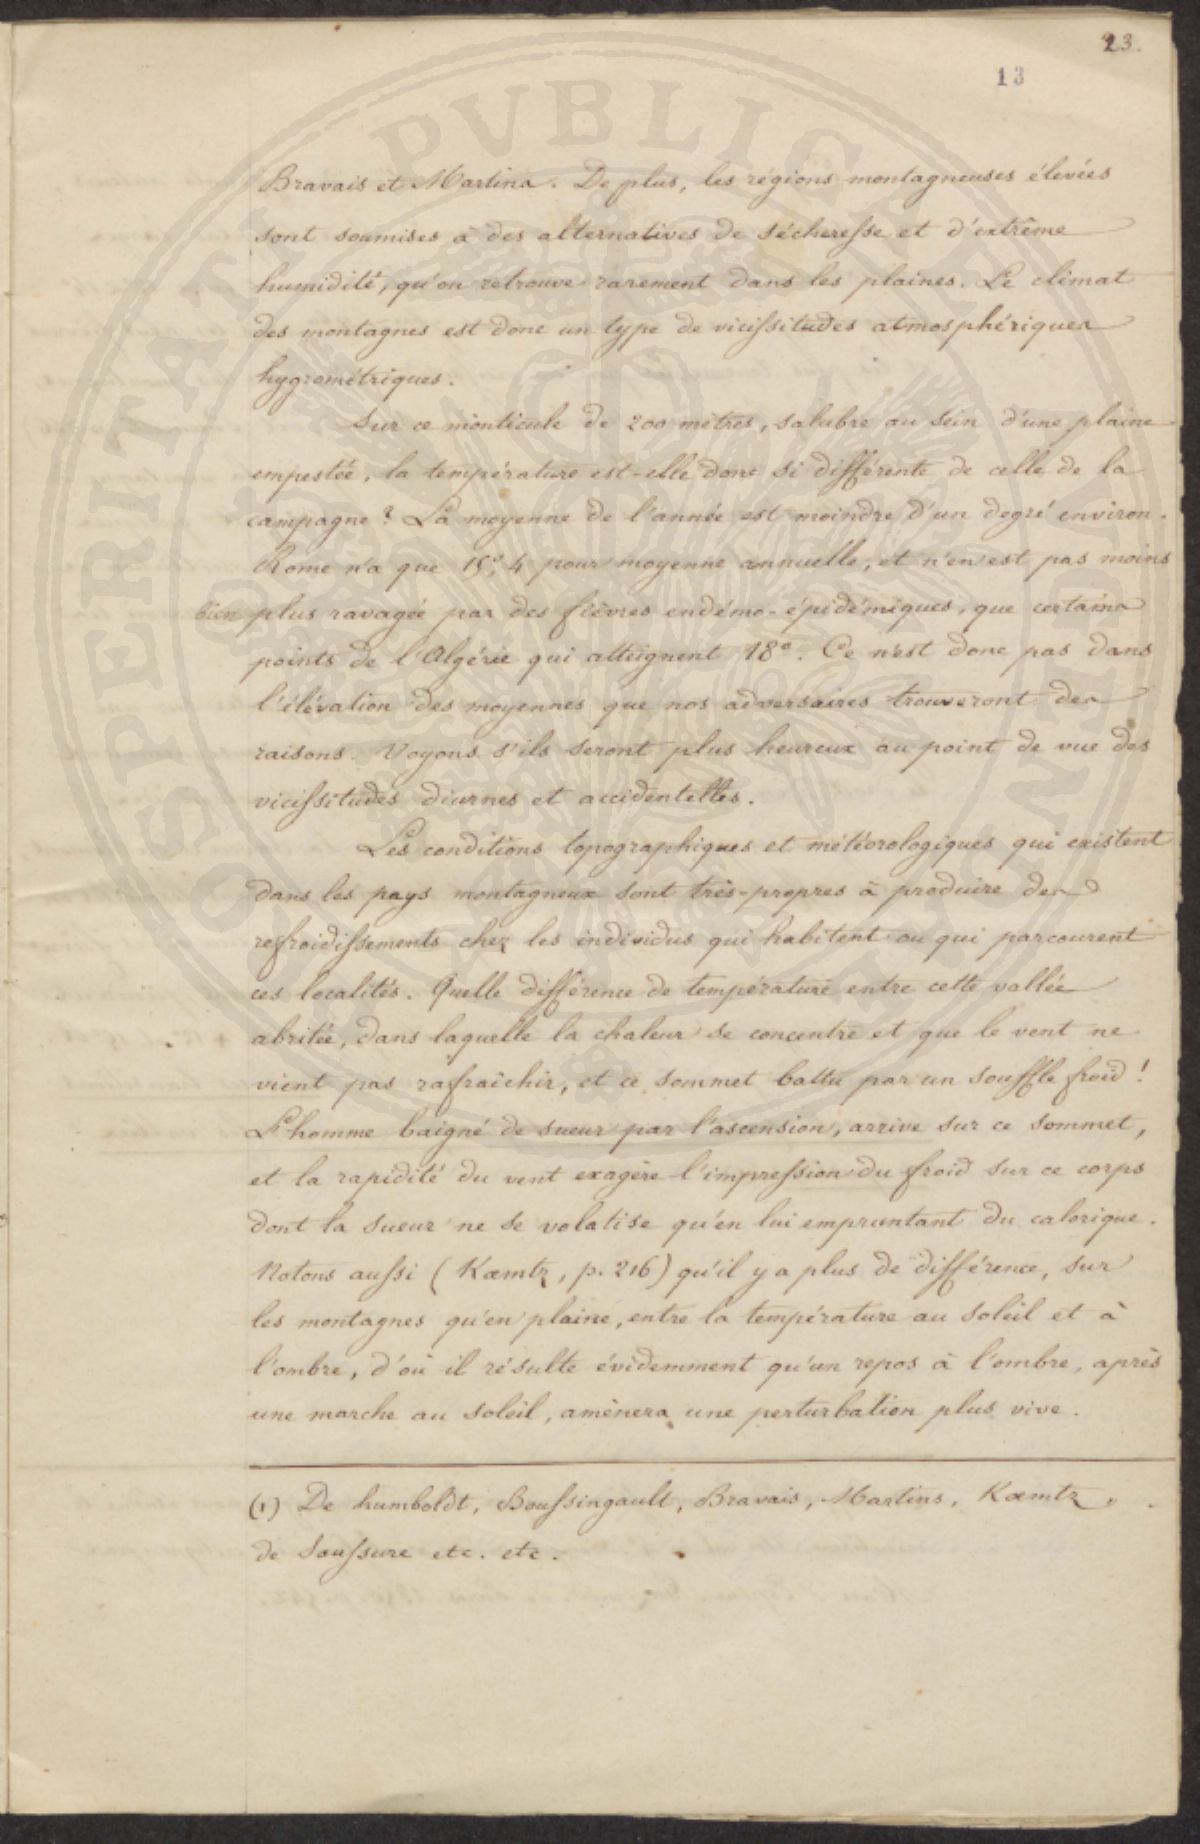 23.
13
Bravais et Martins. De plus, les régions montagneuses élevées
sont soumises à des alternatives de sécheresse et d'extrême
humidité, qu'on retrouve rarement dans les plaines. Le climat
des montagnes est donc un type de vicissitudes atmosphériques
hygrométriques.
Sur ce monticule de 200 mètres, salubre au sein d'une plaine
empestée, la température est-elle donc si différente de celle de la
campagne? La moyenne de l'année est moindre d'un degré environ.
Rome n'a que 15°,4 pour moyenne annuelle, et n'en est pas moins
bien plus ravagée par des fièvres endémo-épidémiques, que certains
points de l'Algérie qui atteignent 18°. Ce n'est donc pas dans
l'élévation des moyennes que nos adversaires trouveront des
raisons. Voyons s'ils seront plus heureux au point de vue des
vicissitudes diurnes et accidentelles.
Les conditions topographiques et météorologiques qui existent
dans les pays montagneux sont très-propres à produire des
refroidissements chez les individus qui habitent ou qui parcourent
ces localités. Quelle différence de température entre cette vallée
abritée, dans laquelle la chaleur se concentre et que le vent ne
vient pas rafraîchir, et ce sommet battu par un souffle froid!
L'homme baigné de sueur par l'ascension, arrive sur ce sommet,
et la rapidité du vent exagère l'impression du froid sur ce corps
dont la sueur ne se volatise qu'en lui empruntant du calorique.
Notons aussi (Kœmtz, p. 216) qu'il y a plus de différence, sur
les montagnes qu'en plaine, entre la température au soleil et à
l'ombre, d'où il résulte évidemment qu'un repos à l'ombre, après
une marche au soleil, amènera une perturbation plus vive.
(1) De humboldt, Boussingault, Bravais, Martins, Kœmtz,
de Saussure etc. etc.
PVBLICAE
PROSPERITATI